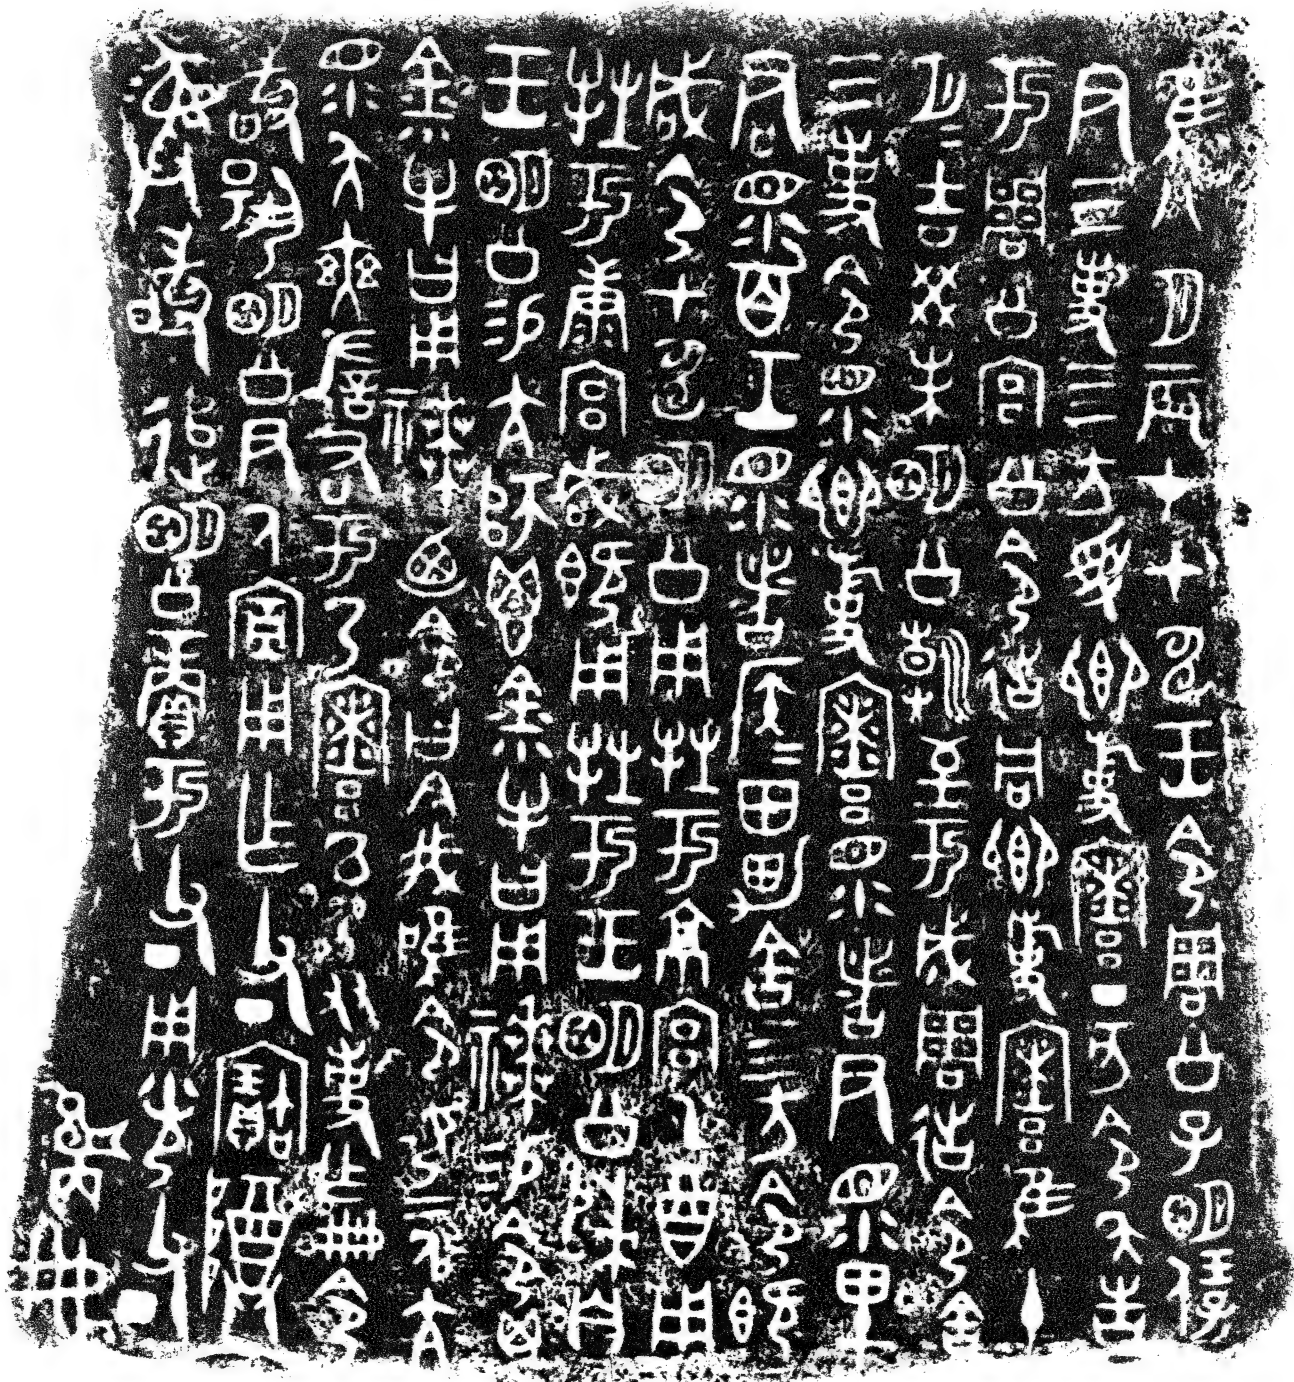 隹八月辰才甲申王令周公子明保
尹三事四方受卿事寮丁亥令夨告
于周公宮公令𢓊同卿事寮隹十
月月吉癸未明公朝至于成周𢓊令舍
三事令眔卿事寮眔者尹眔里
君眔百工眔者侯侯田男舍四方令既
咸令甲申明公用牲于京宮乙酉用
牲于康宮咸既用牲于王明公歸自
王明公易亢師鬯金小牛曰用𥛱易令鬯
金小牛曰用𥛱迺令曰今我唯令女二人亢
眔夨奭左右于乃寮以乃友事乍冊令
敢揚明公尹氒宣用乍父丁寶尊
彝敢追明公賞于父丁用光父丁
冊